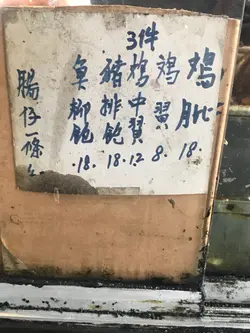 鸡批 18.
鸡翼 8.
3件 鸡中翼 12.
豬排飽 18.
魚柳飽 .18.
腸仔一條